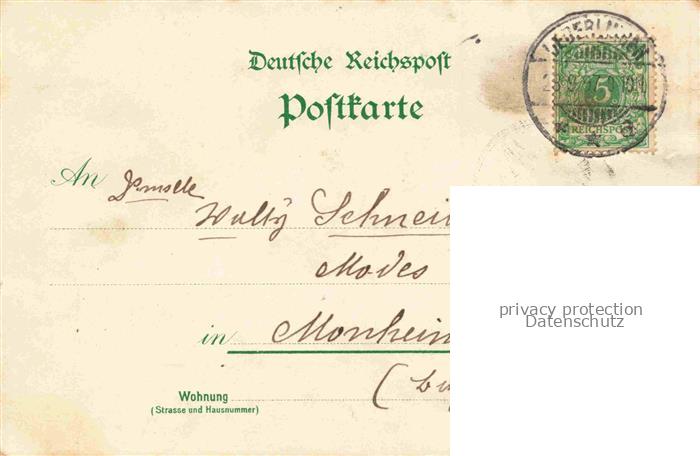 Deutsche Reichspost
Postkarte
5
REICHSPOST
An
Wally Schnei
Modes
in Monheim
Wohnung
(Strasse und Hausnummer)
privacy protection
Datenschutz